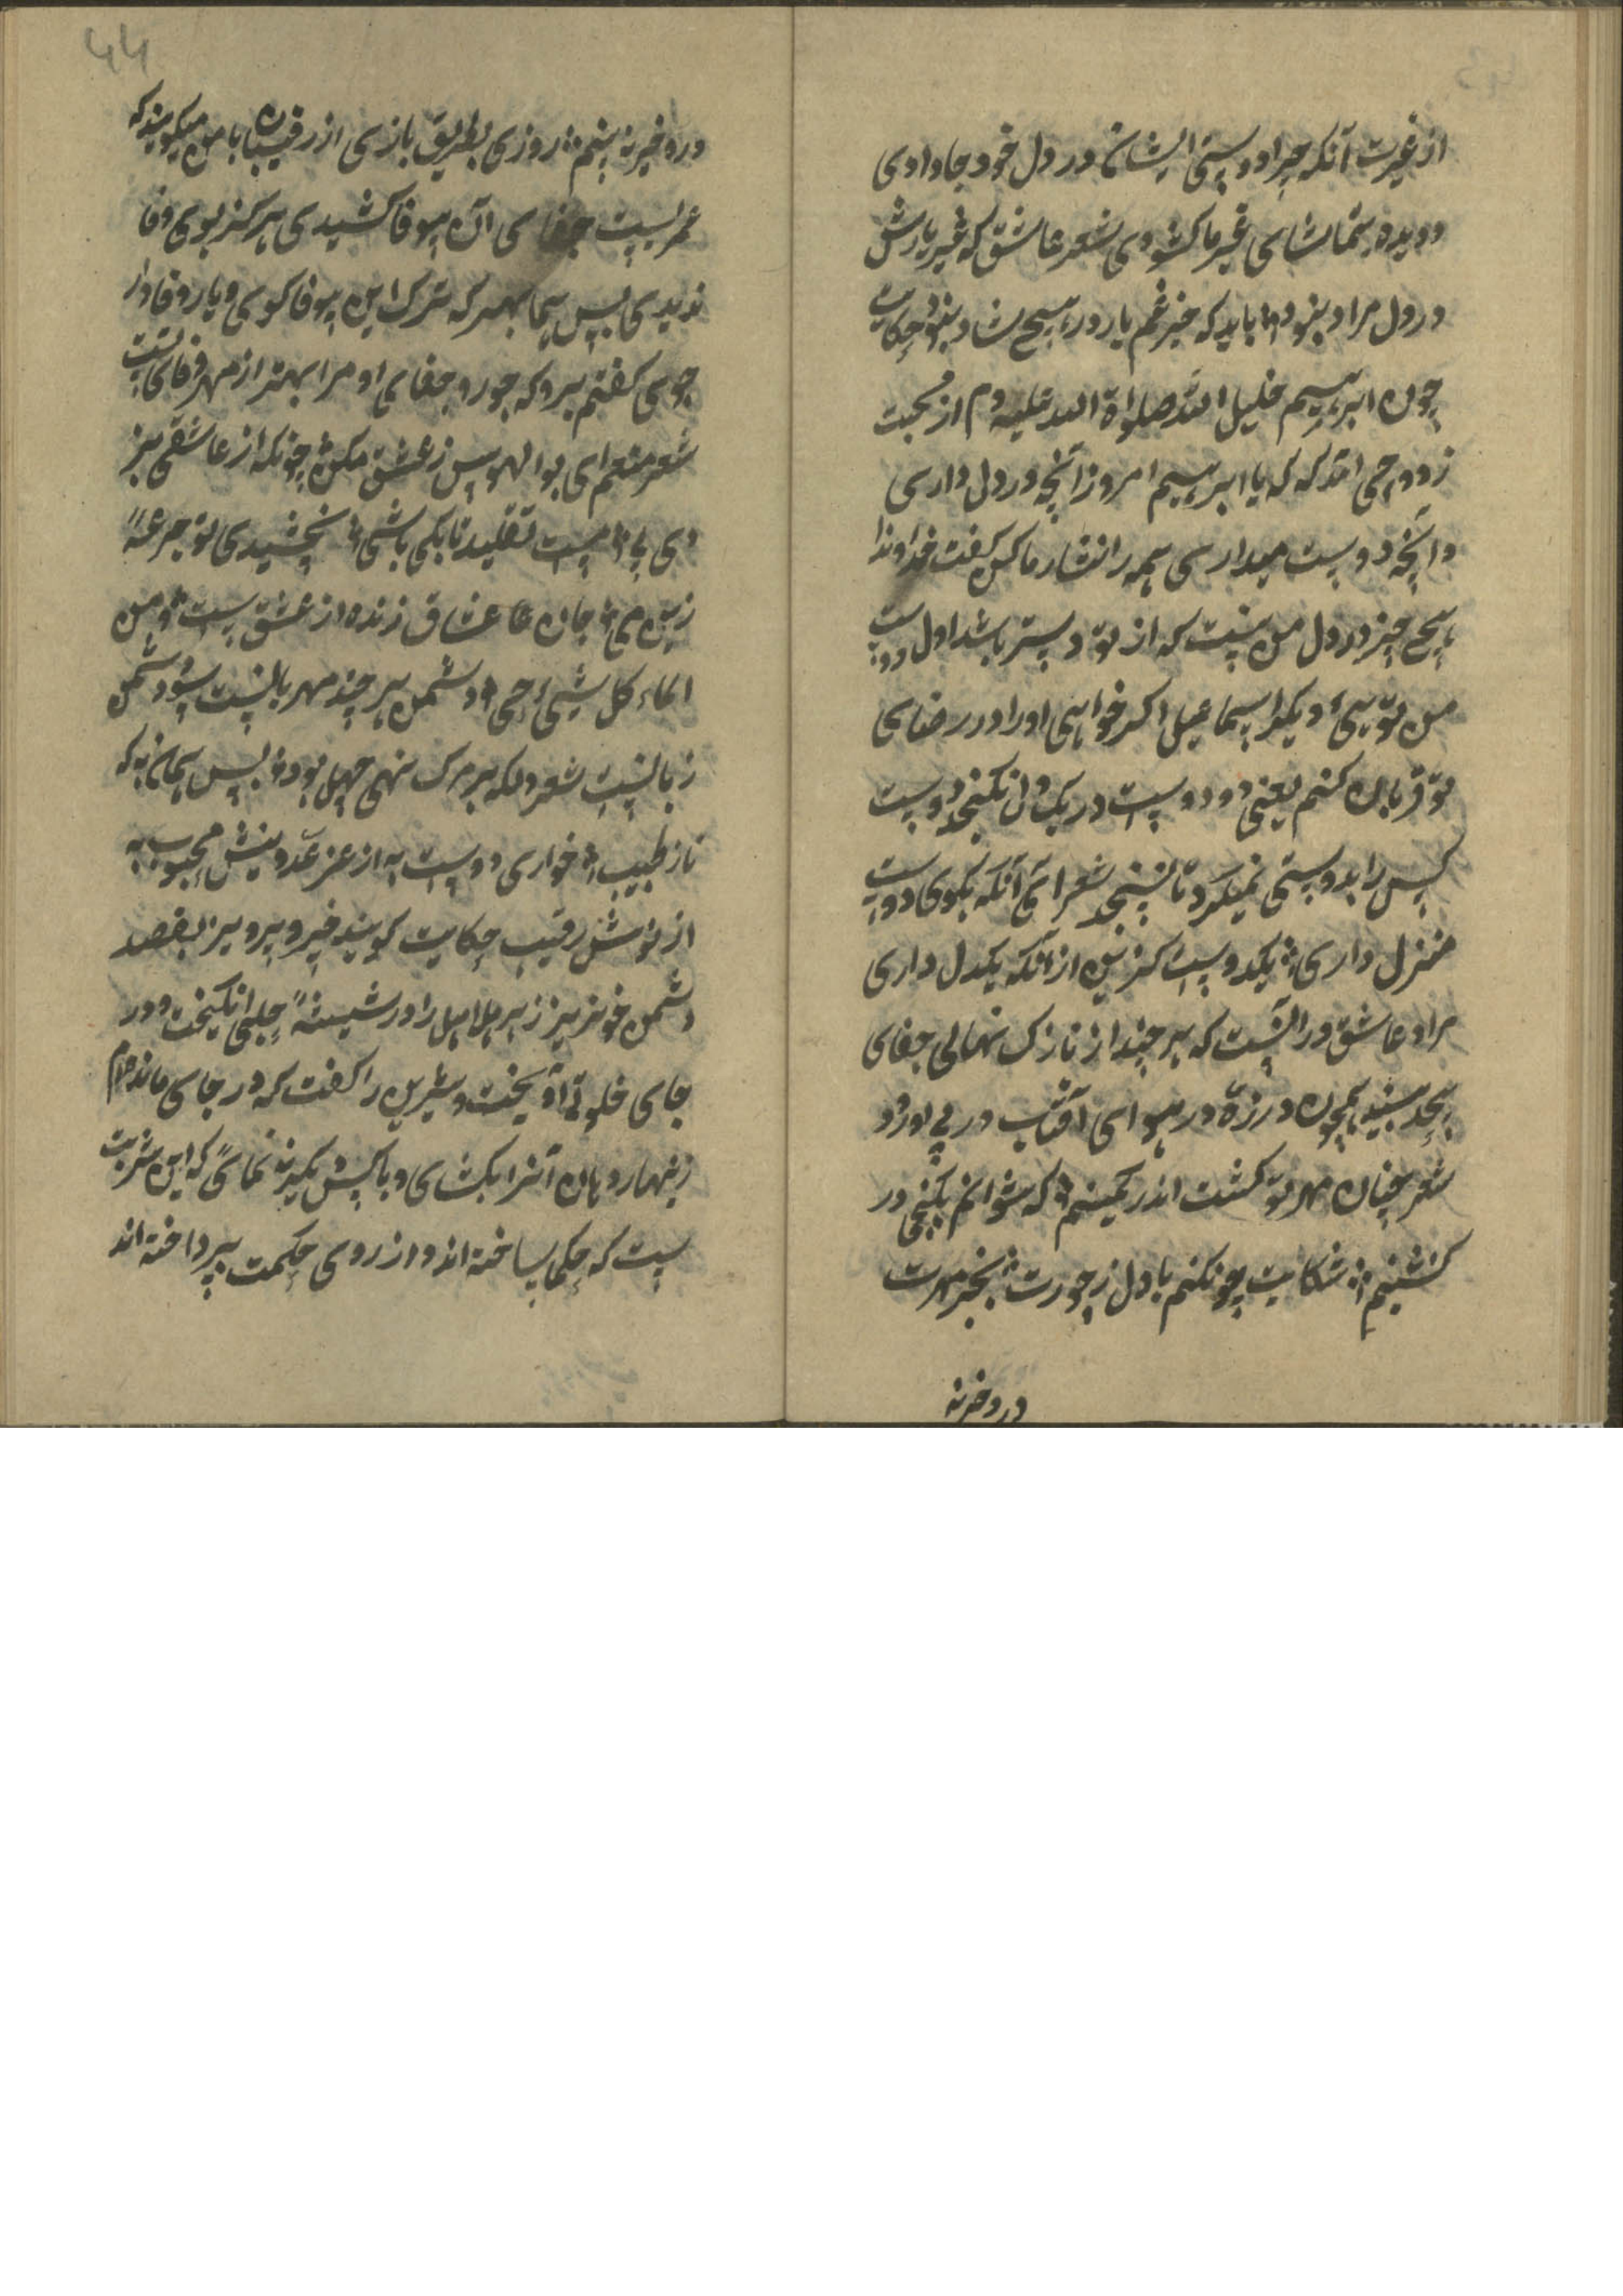 از غیرت آنکه چرا دوستی ایشان در دل خود جا دادی
و دیده بتماشای غیر ما کشودی شعر عاشق که غیر یارش
در دل مراد نبود باید که خبر غم یار در هیچ شاد نبود حکایت
چون ابرهیم خلیل الله صلواة الله علیه دم از محبت
زد وحی امد که یا ابرهیم امروز آنچه در دل داری
و آنچه دوست میداری همه را نثار ما کن گفت خداوندا
هیچ چیز در دل من نیست که از تو دوستر باشد اول دوست
من توئی و دیگر اسماعیل اگر خواهی او را در رضای
تو قربان کنم یعنی دو دوست در یک دل نگنجد و دوست
کس را بدوستی نمیگیرد تا نسنجد شعر ای آنکه بکوی دوست
منزل داری یکدوست گزین از آنکه یکدل داری
مراد عاشق در آنست که هر چند از نازک نهالی جفای
بیحد بیند همچون ذره در هوای آفتاب در پی او رود
شعر چنان مهر تو گشت اندر کمینم که نتوانم بکنجی در
نشینم شکایت چونکنم با دل ز جورت بجز مهرت
درو خیر نه
درو خیر نه بینم روزی بطریق بازی از رقیبان با من میگویند که
عمریست جفای آن بیوفا کشیدی هرگز بوی وفا
ندیدی پس بیا بهر که ترک این بیوفا گوی و یار وفادار
جوی گفتم برو که جور و جفای او مرا بهتر از مهر و وفای تست
شعر منعم ای بوالهوس ز عشق مکن چونکه از عاشقی نیز
دی پی هست تقلید تا بکی باشی نچشیدی تو جرعهٔ
زین می جان عشاق زنده از عشق است و من
الماء کل شیئ حی دشمن هر چند مهربانست شو دشمن
زبانست شعر دلکه بر مرک نهی سهل بود پس همان به که
ناز طبیب خواری دوست به از عز عدو نیش محبوب به
از نوش رقیب حکایت گویند خسرو پرویز بقصد
دشمن خونریز زهر هلاهل را در شیشهٔ حلبی انگیخت و در
جای خلوتی آویخت و شیرین را گفت که در جای ماند حرام
زینهار دهان آنرا بکشای و با کس نگیر نه نمای که این شربت
ست که حکما ساخته اند و از روی حکمت پرداخته اند